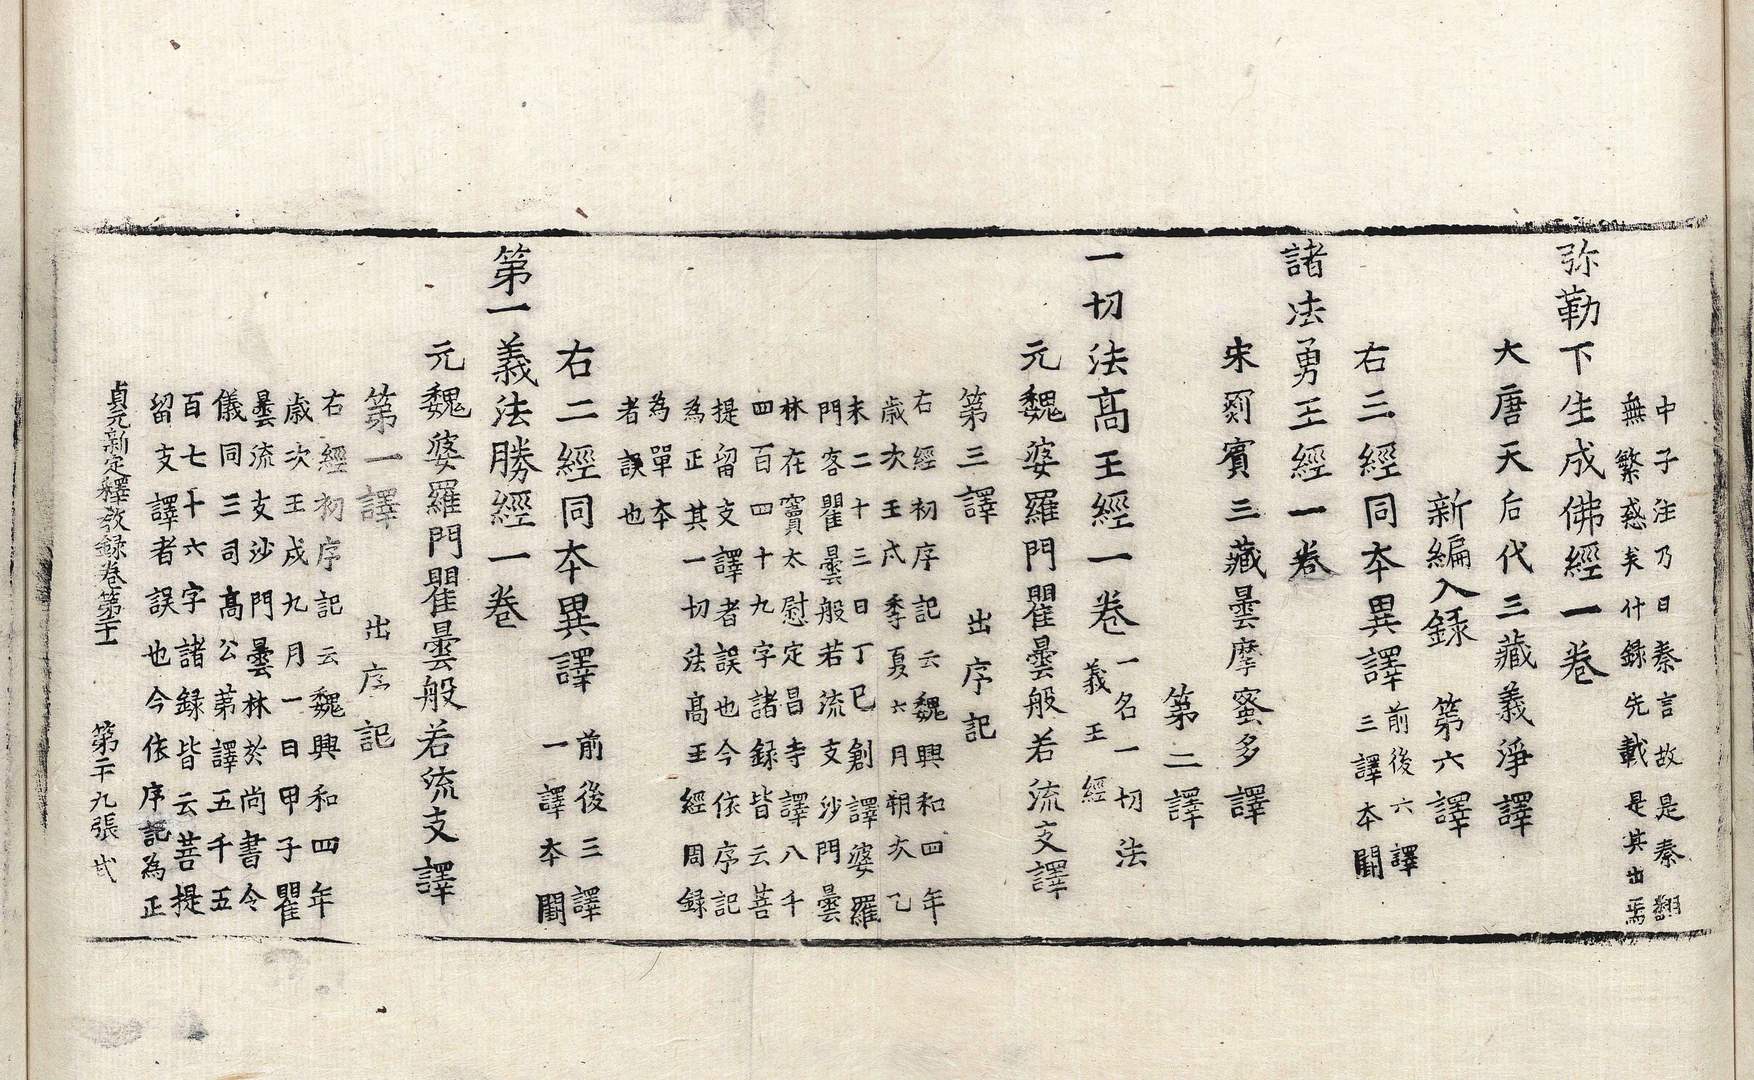 中子注乃曰秦言故是秦翻
無繁惑矣什録先載是其出焉
弥勒下生成佛經一卷
大唐天后代三藏義淨譯
新編入録　第六譯
右三經同本異譯
前後六譯
三譯本闕
諸法勇王經一卷
宋罽賓三藏曇摩蜜多譯
第二譯
一切法高王經一卷
一名一切法
義王經
元魏婆羅門瞿曇般若流支譯
第三譯　出序記
右經初序記云魏興和四年
歳次壬戌季夏六月朔次乙
未二十三日丁巳創譯婆羅
門客瞿曇般若流支沙門曇
林在竇太慰定昌寺譯八千
四百四十九字諸録皆云菩
提留支譯者誤也今依序記
為正其一切法高王經周録
為單本
者誤也
右二經同本異譯
前後三譯
一譯本闕
第一義法勝經一卷
元魏婆羅門瞿曇般若流支譯
第一譯　出序記
右經初序記云魏興和四年
歳次壬戌九月一日甲子瞿
曇流支沙門曇林於尚書令
儀同三司高公第譯五千五
百七十六字諸録皆云菩提
留支譯者誤也今依序記為正
貞元新定釋教録卷第二十一　第二十九張　弐